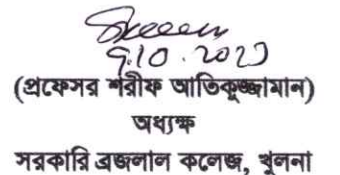 9.10.2023
(প্রফেসর শরীফ আতিকুজ্জামান)
অধ্যক্ষ
সরকারি ব্রজলাল কলেজ, খুলনা